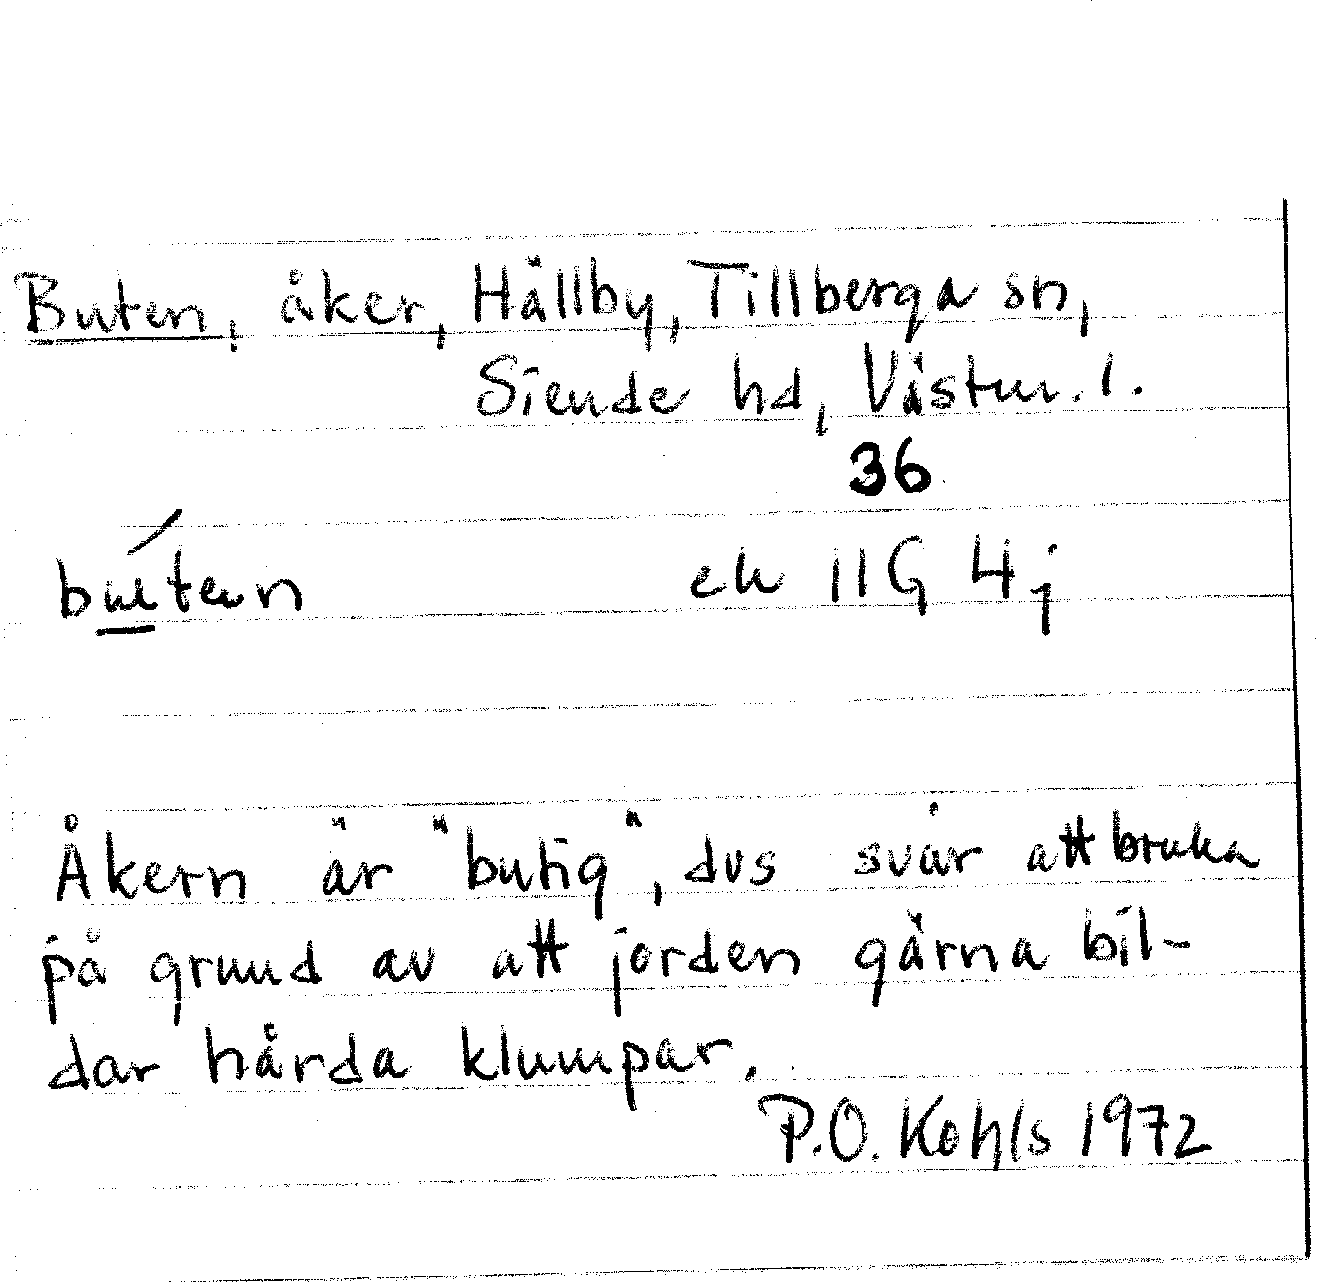 Buten, åker, Hällby, Tillberga sn,
Siende hd, Västm. l.
36
ek 11G 4j
Åkern är "butig", dvs svår att bruka
på grund av att jorden gärna bil-
dar hårda klumpar.
P.O. Kohls 1972